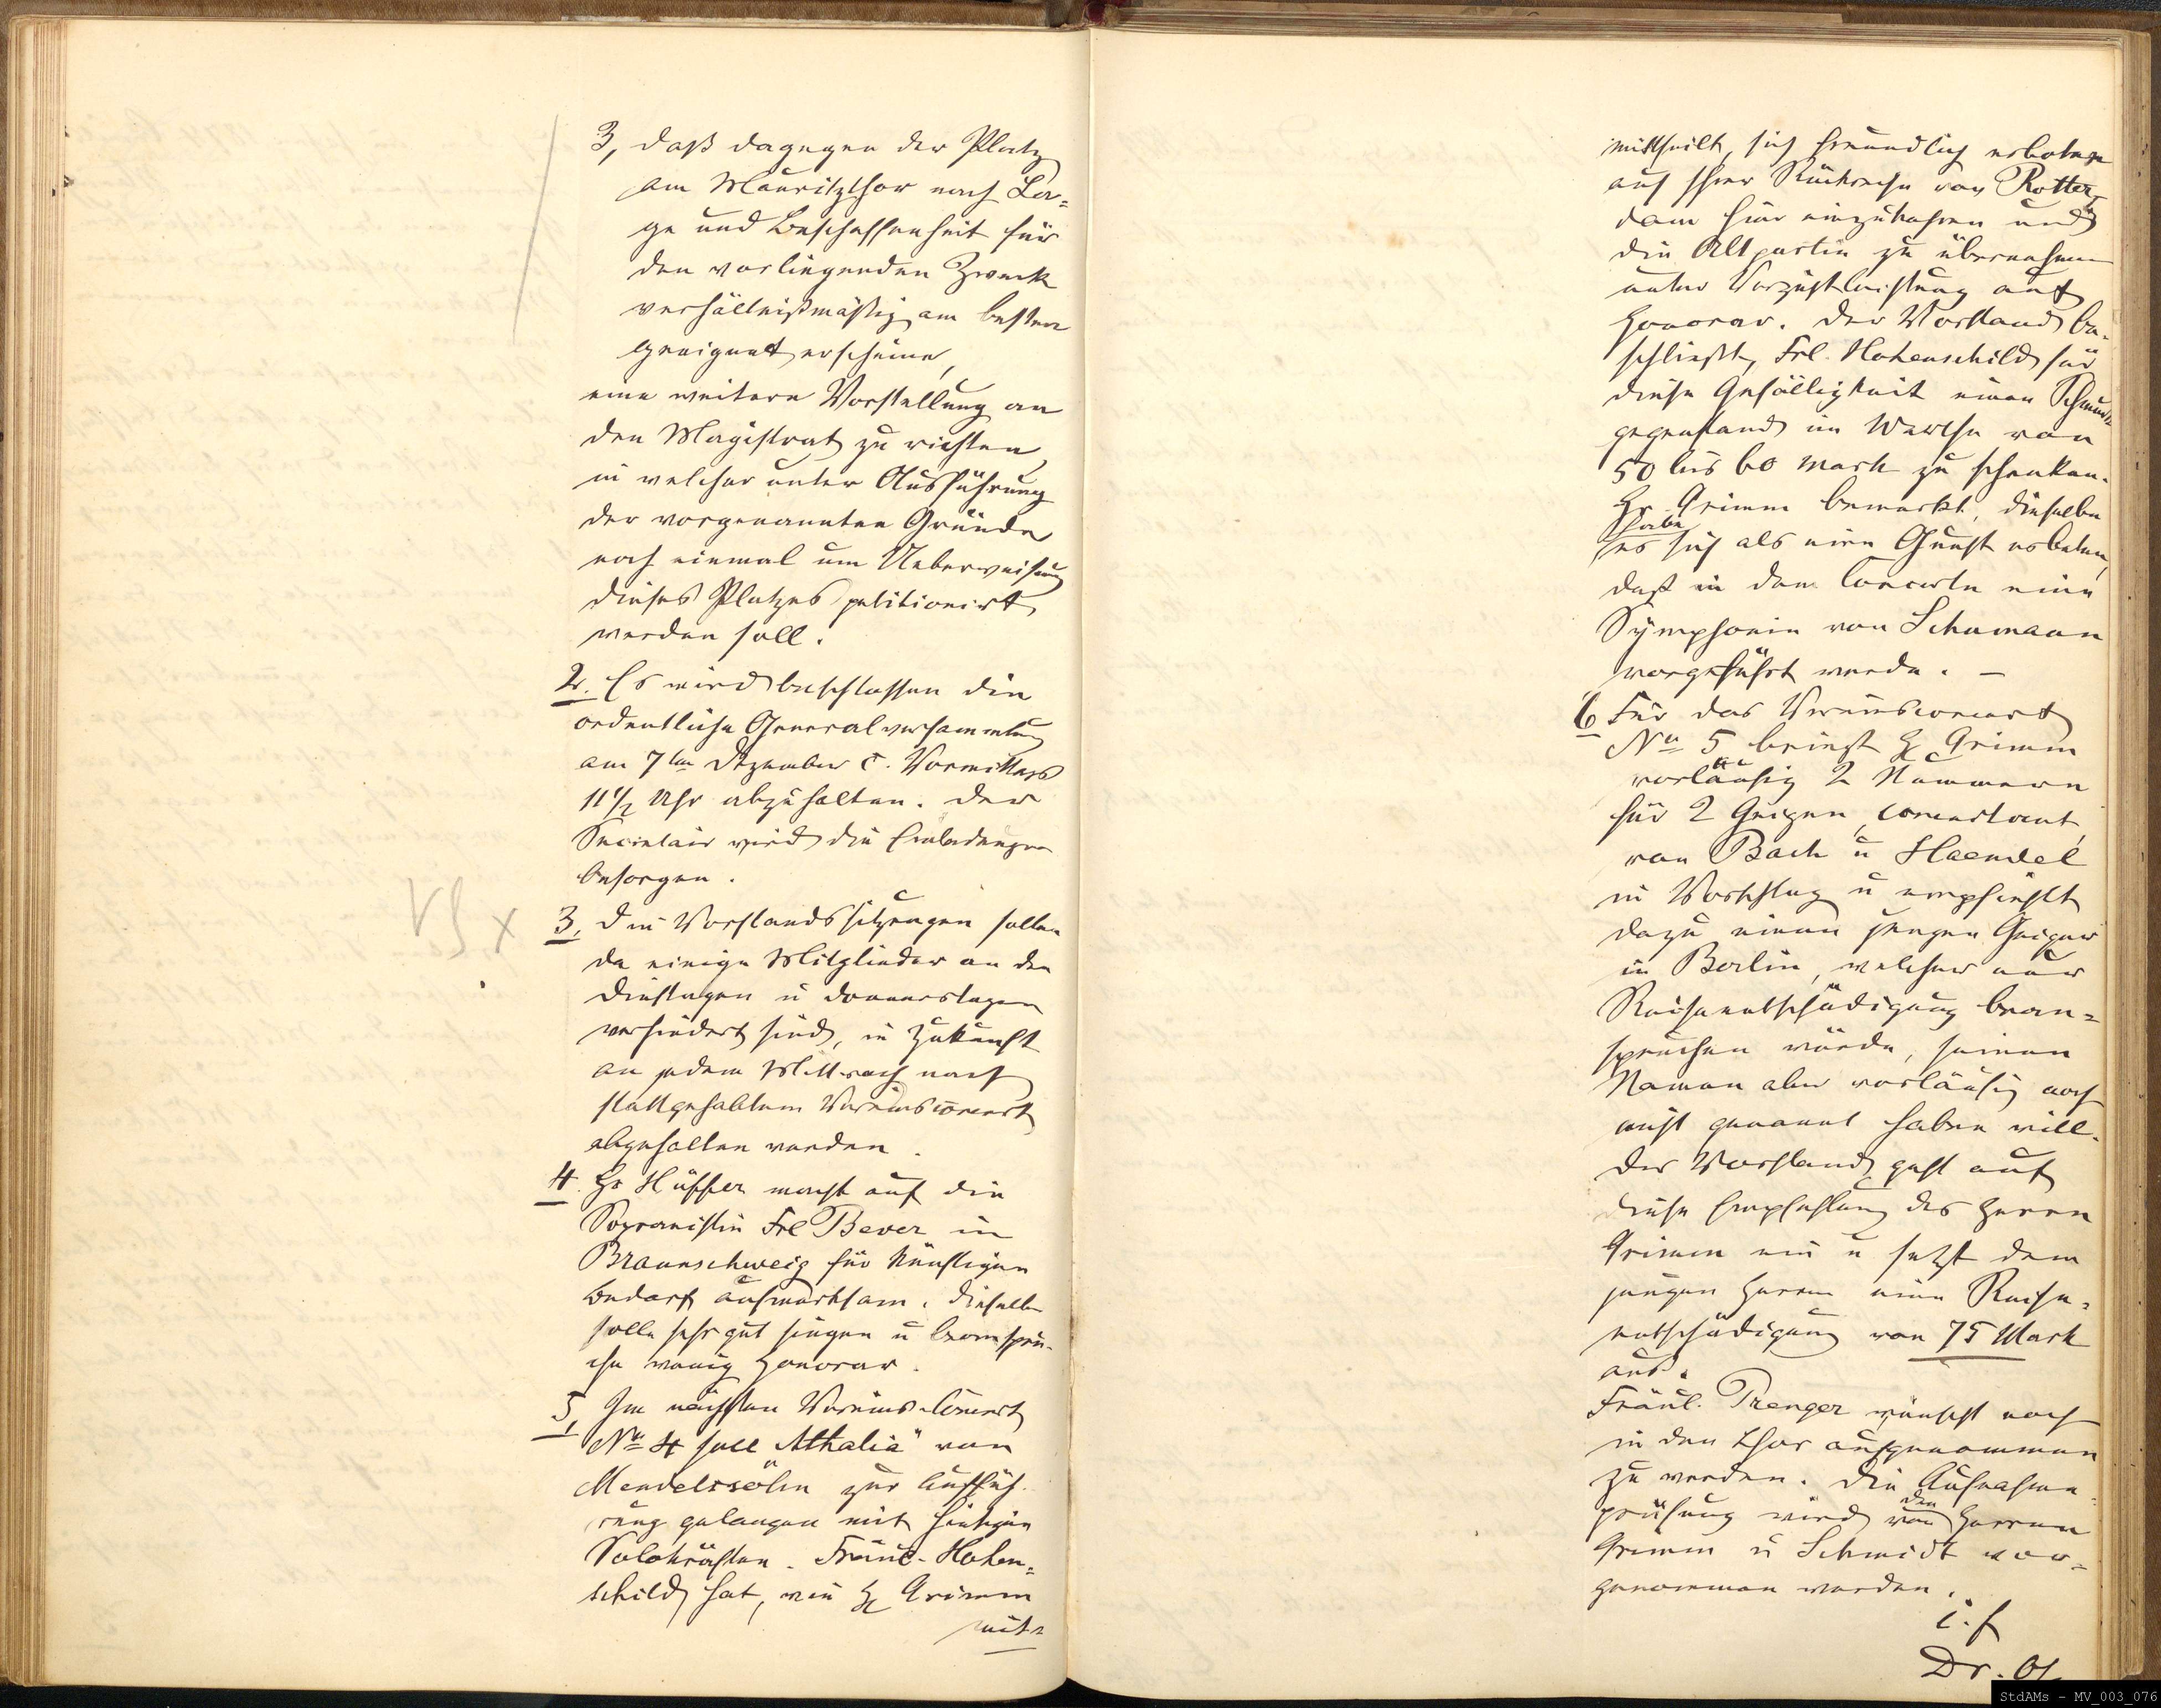 3, daß dagegen der Platz
am Mauritzthor nach La=
ge und Beschaffenheit für
den vorliegenden Zweck
verhältnißmäßig am besten
geeignet erscheine,
eine weitere Vorstellung an
den Magistrat zu richten,
in welcher unter Ausführung
der vorgenannten Gründe
noch einmal um Ueberweisung
dieses Platzes petitionirt
werden soll.
2. Es wird beschlossen die
ordentliche Generalversammlung
am 7ten Dezember c. Vormittags
11 1/2 Uhr abzuhalten. Der
Secretair wird die Einladungen
besorgen.
3, Die Vorstandssitzungen sollen
da einige Mitglieder an den
Dienstagen u Donnerstagen
verhindert sind, in Zukunft
an jedem Mittwoch nach
stattgehabtem Vereinsconcert
abgehalten werden.
4. Hr Hüffer macht auf die
Sopranistin Frl Bever in
Braunschweig für künftigen
Bedarf aufmerksam, dieselbe
solle sehr gut singen u beanspru-
che wenig Honorar.
5, Im nächsten Vereins-Concert
No 4 soll Athalia" von
Mendelssohn zur Auffüh-
rung gelangen mit hiesigen
Solokräften. Fräul. Hohen=
schild hat, wie H Grimm
mit=
mittheilt, sich freundlich erboten
auf Ihrer Rückreise von Rotter=
dam hier einzukehren und
die Altpartie zu übernehmen
unter Verzichtleistung auf
Honorar. Der Vorstand be-
schließt, Frl. Hohenschild für
diese Gefälligkeit einen Schmuck
gegenstand im Werthe von
50 bis 60 Mark zu schenken.
Hr Grimm bemerkt, dieselbe
habe
es sich als eine Gunst erbeten,
daß in dem Concerte eine
Symphonie von Schumann
vorgeführt werde. –
6 Für das Vereinsconcert
No 5 bringt H Grimm
vorläufig 2 Nummern
für 2 Geigen, concertant,
von Bach u Haendel
in Vorschlag u empfiehlt
dazu einen jungen Geiger
in Berlin, welcher nur
Reiseentschädigung bean=
spruchen würde, seinen
Namen aber vorläufig noch
nicht genannt haben will.
Der Vorstand geht auf
diese Empfehlung des Herrn
Grimm ein u setzt dem
jungen Herrn eine Reise=
entschädigung von 75 Mark
aus.
Fräul. Prenger wünscht noch
in den Chor aufgenommen
zu werden. Die Aufnahme=
prüfung wird von
den
Herren
Grimm u Schmidt vor=
genommen werden.
i. f
Dr. O
StdAMs - MV_003_076